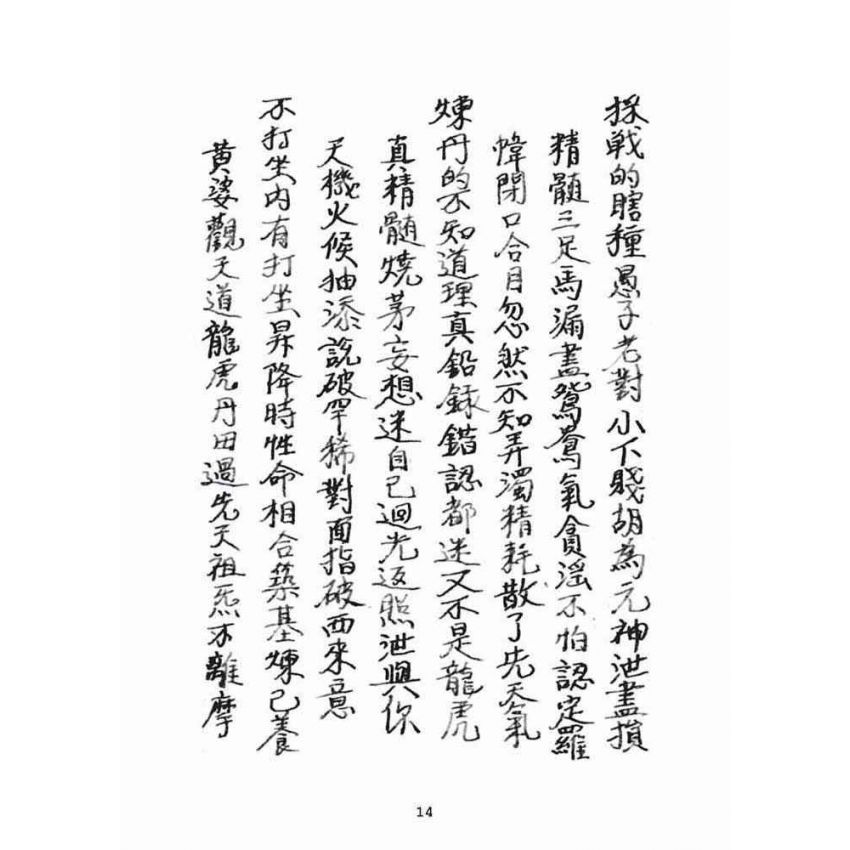 採戰的瞎種愚子老對小下賤胡為元神泄盡損
精髓三足馬漏盡鴛鴦氣貪滛不怕認定羅
幃閉口合目忽然不知弄濁精耗散了先天氣
煉丹的不知道理真鉛錄錯認都迷又不是龍虎
真精髓燒茅妄想迷自己迴光返照泄與你
天機火候抽添說破罕稀對面指破西來意
不打坐內有打坐昇降時性命相合築基煉己養
黃婆觀天道龍虎丹田過先天祖炁不離摩
14